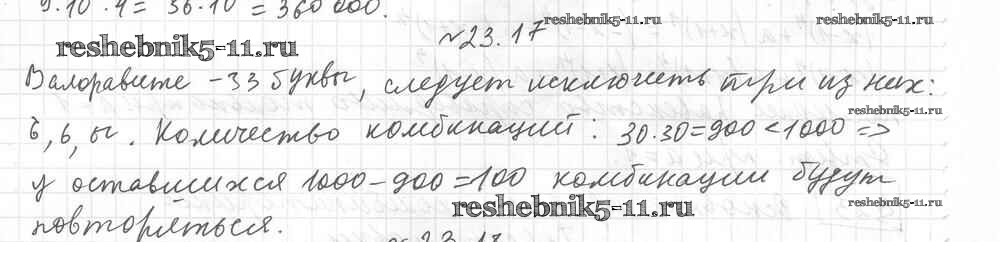 9·10 · 4 = 36·10 = 360 000.
reshebnik5-11.ru
reshebnik5-11.ru
№23.17
reshebnik5-11.ru
В алфавите – 33 буквы, следует исключить три из них:
reshebnik5-11.ru
ъ, ь, ы. Количество комбинаций: 30·30=900 <1000 =>
у оставшихся 1000–900=100 комбинации будут
reshebnik5-11.ru
reshebnik5-11.ru
повторяться.